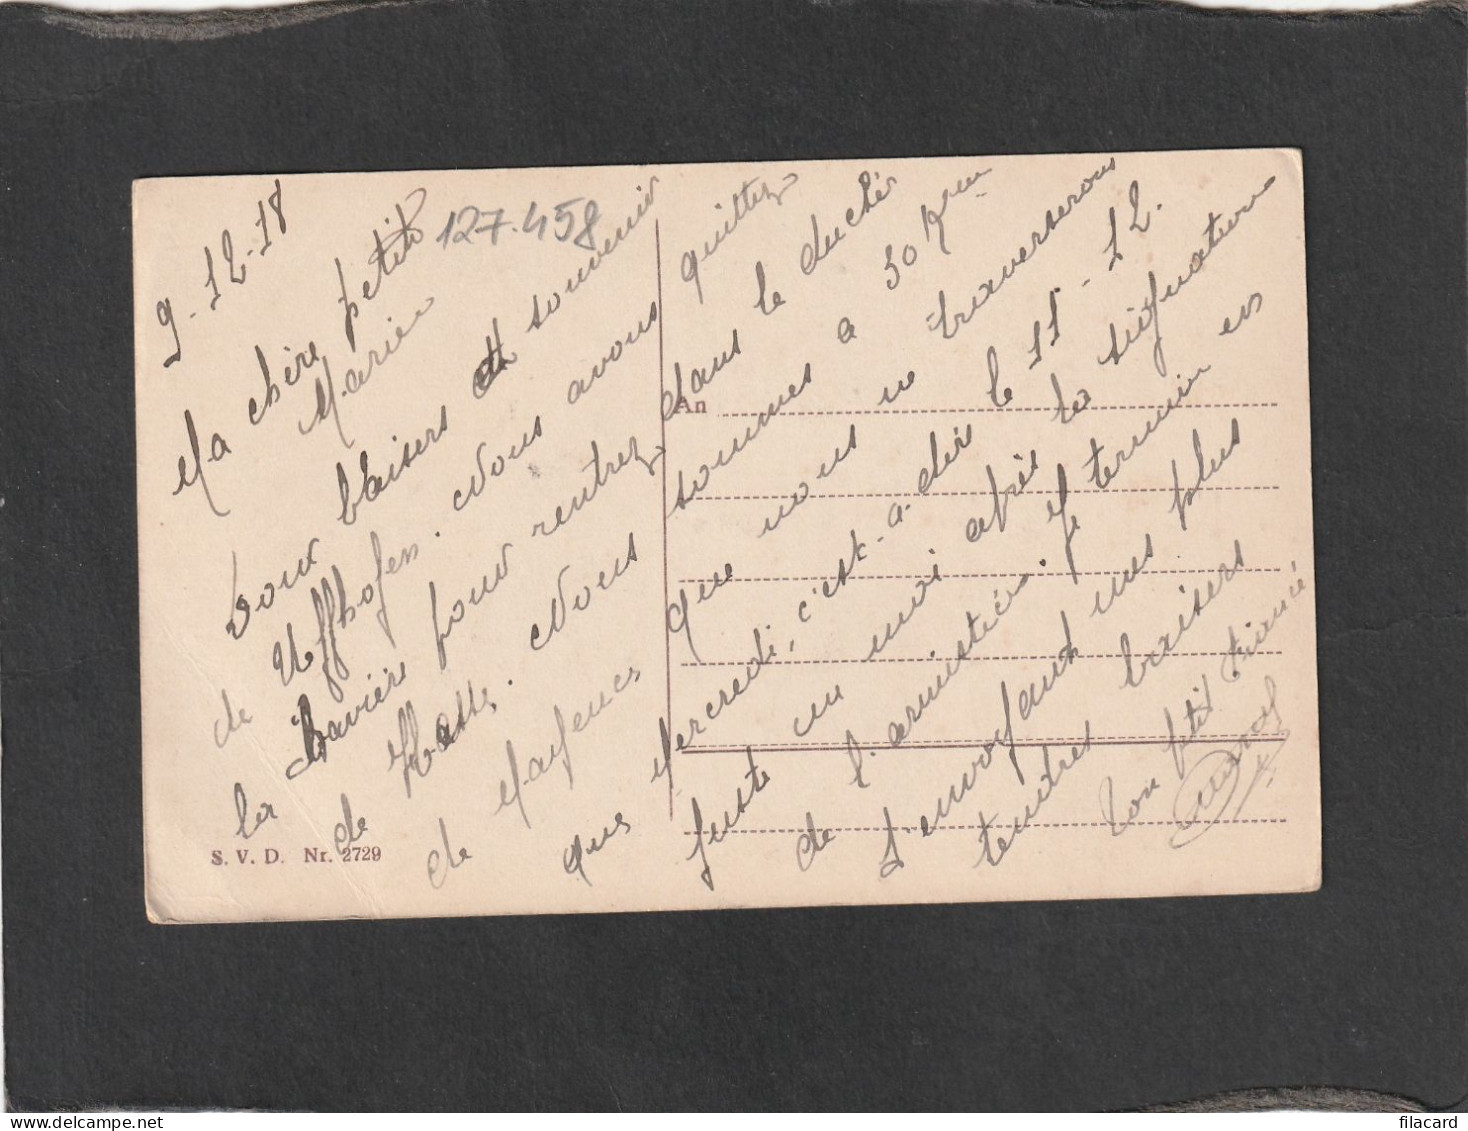 9-12-18
127.458
Ma chère petite
Marie
Doux baisers et souvenir
de Uffhofen. Nous avons quittez
la Bavière pour rentrez dans le duché
de Hesse. Nous sommes a 30 Km
de Mayence que nous ne traverserons
que Mercredi, c'est-a-dir le 11-12.
juste un moi après la signature
de l'armistice. Je termine en
t'envoyant mes plus
tendres baisers
Ton petit fiancé
An
S. V. D. Nr. 2729
filacard
www.delcampe.net